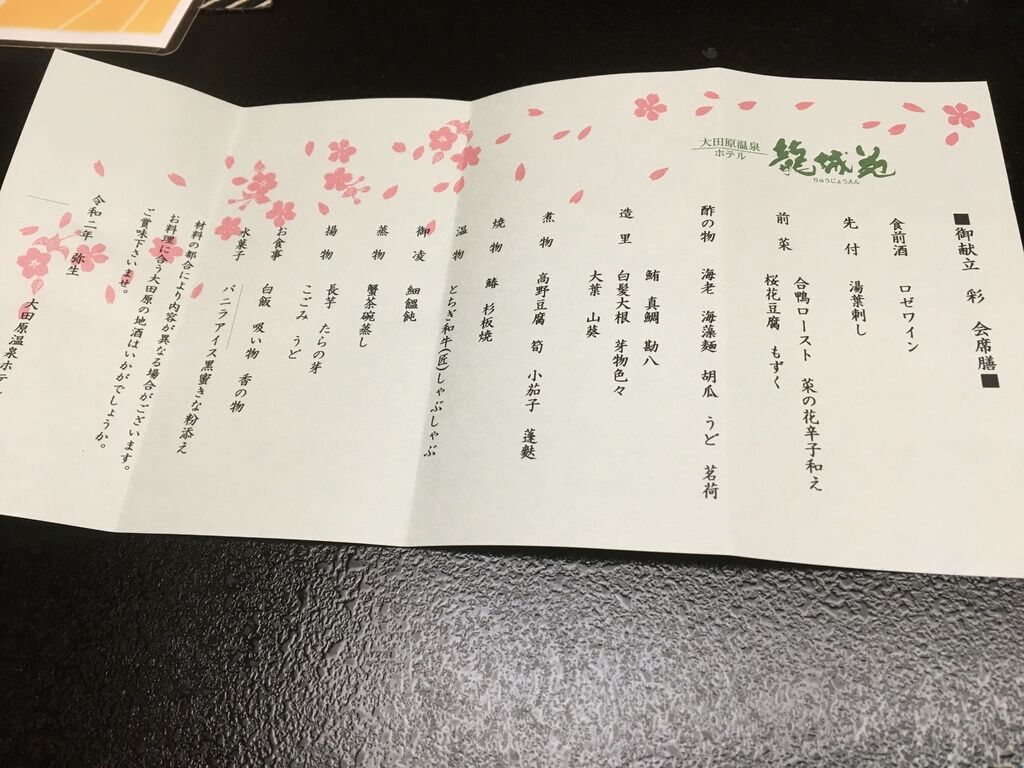 大田原温泉
ホテル
龍城苑
りゅうじょうえん
■御献立 彩 会席膳■
食前酒 ロゼワイン
先付 湯葉刺し
前菜 合鴨ロースト 菜の花辛子和え
桜花豆腐 もずく
酢の物 海老 海藻麺 胡瓜 うど 茗荷
造里 鮪 真鯛 勘八
白髪大根 芽物色々
大葉 山葵
煮物 高野豆腐 筍 小茄子 蓬麩
焼物 鰆 杉板焼
温物 とちぎ和牛(匠)しゃぶしゃぶ
御凌 細饂飩
蒸物 蟹茶碗蒸し
揚物 長芋 たらの芽
こごみ うど
お食事 白飯 吸い物 香の物
水菓子 バニラアイス黒蜜きな粉添え
材料の都合により内容が異なる場合がございます。
お料理に合う大田原の地酒はいかがでしょうか。
ご賞味下さいませ。
令和二年 弥生
大田原温泉ホテル